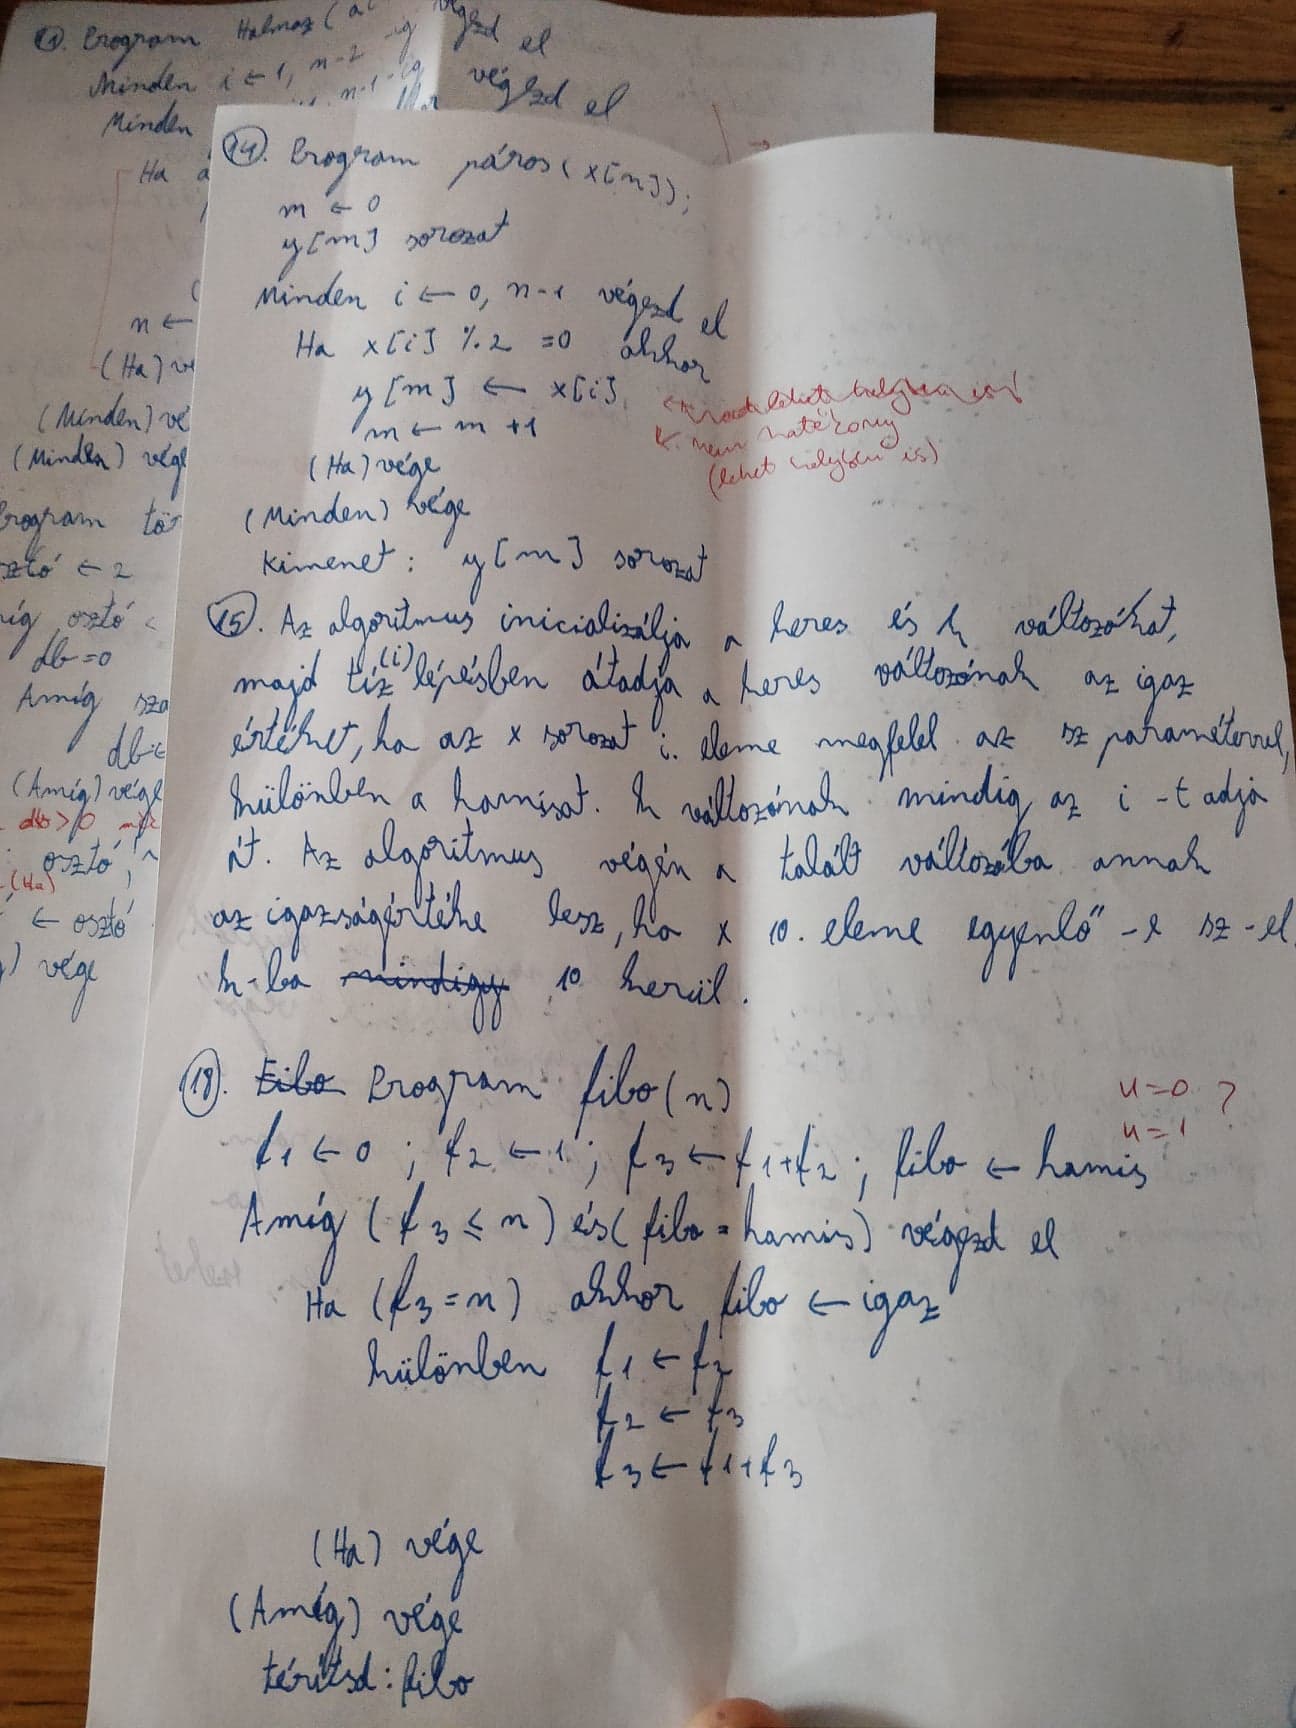 11. Program Halmaz(
Minden i ← 1, n-2 ig végezd el
Minden n-1-ig végezd el
Ha
n ←
(Ha) vé
(Minden) vé
(Minden) vége
Program tör
osztó ← 2
osztó <
db=0
Amíg sza
db←
(Amíg) vége
db>0
osztó
(Ha)
← osztó
) vége
14. Program páros(x[n]);
m ← 0
y[m] sorozat
Minden i ← 0, n-1 végezd el
Ha x[i] % 2 =0 akkor
y[m] ← x[i]
m ← m +1
← nem hatékony
(lehet helyben is)
(Ha) vége
(Minden) vége
Kimenet: y[m] sorozat
15. Az algoritmus inicializálja a keres és k változókat,
majd tíz (i) lépésben átadja a keres változónak az igaz
értéket, ha az x sorozat i. eleme megfelel az sz paraméterrel,
különben a hamisat. k változónak mindig az i -t adja
át. Az algoritmus végén a talált változóba annak
az igazságértéke lesz, ha x 10. eleme egyenlő -e sz -el.
k-ba mindigy 10 kerül.
18. Fibo Program fibo(n)
n=0 ?
n=1
f1 ← 0 ; f2 ← 1 ; f3 ← f1+f2 ; fibo ← hamis
Amíg (f3 ≤ n) és (fibo = hamis) végezd el
Ha (f3 = n) akkor fibo ← igaz
különben f1 ← f2
f2 ← f3
f3 ← f1+f3
(Ha) vége
(Amíg) vége
térítsd: fibo